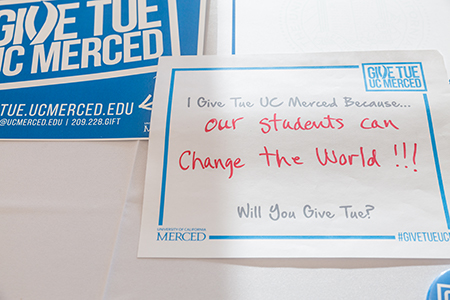 GIVE TUE
UC MERCED
TUE.UCMERCED.EDU
@UCMERCED.EDU | 209.228.GIFT
MERCED
GIVE TUE
UC MERCED
I Give Tue UC Merced Because...
our students can
Change the World !!!
Will You Give Tue?
UNIVERSITY OF CALIFORNIA
MERCED
#GIVETUEUC